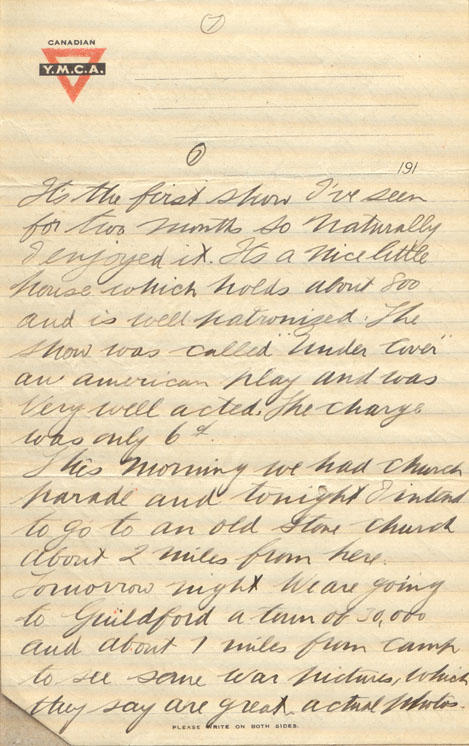 7
CANADIAN
Y.M.C.A.
7
191
It's the first show I've seen
for two months so naturally
I enjoyed it. Its a nice little
house which holds about 800
and is well patronized. The
show was called "Under Cover"
an american play and was
very well acted. The charge
was only 6d.
This morning we had church
parade and tonight I intend
to go to an old stone church
about 2 miles from here.
Tomorrow night we are going
to Guildford a town of 30,000
and about 7 miles from camp
to see some war pictures, which
they say are great, actual photos.
PLEASE WRITE ON BOTH SIDES.